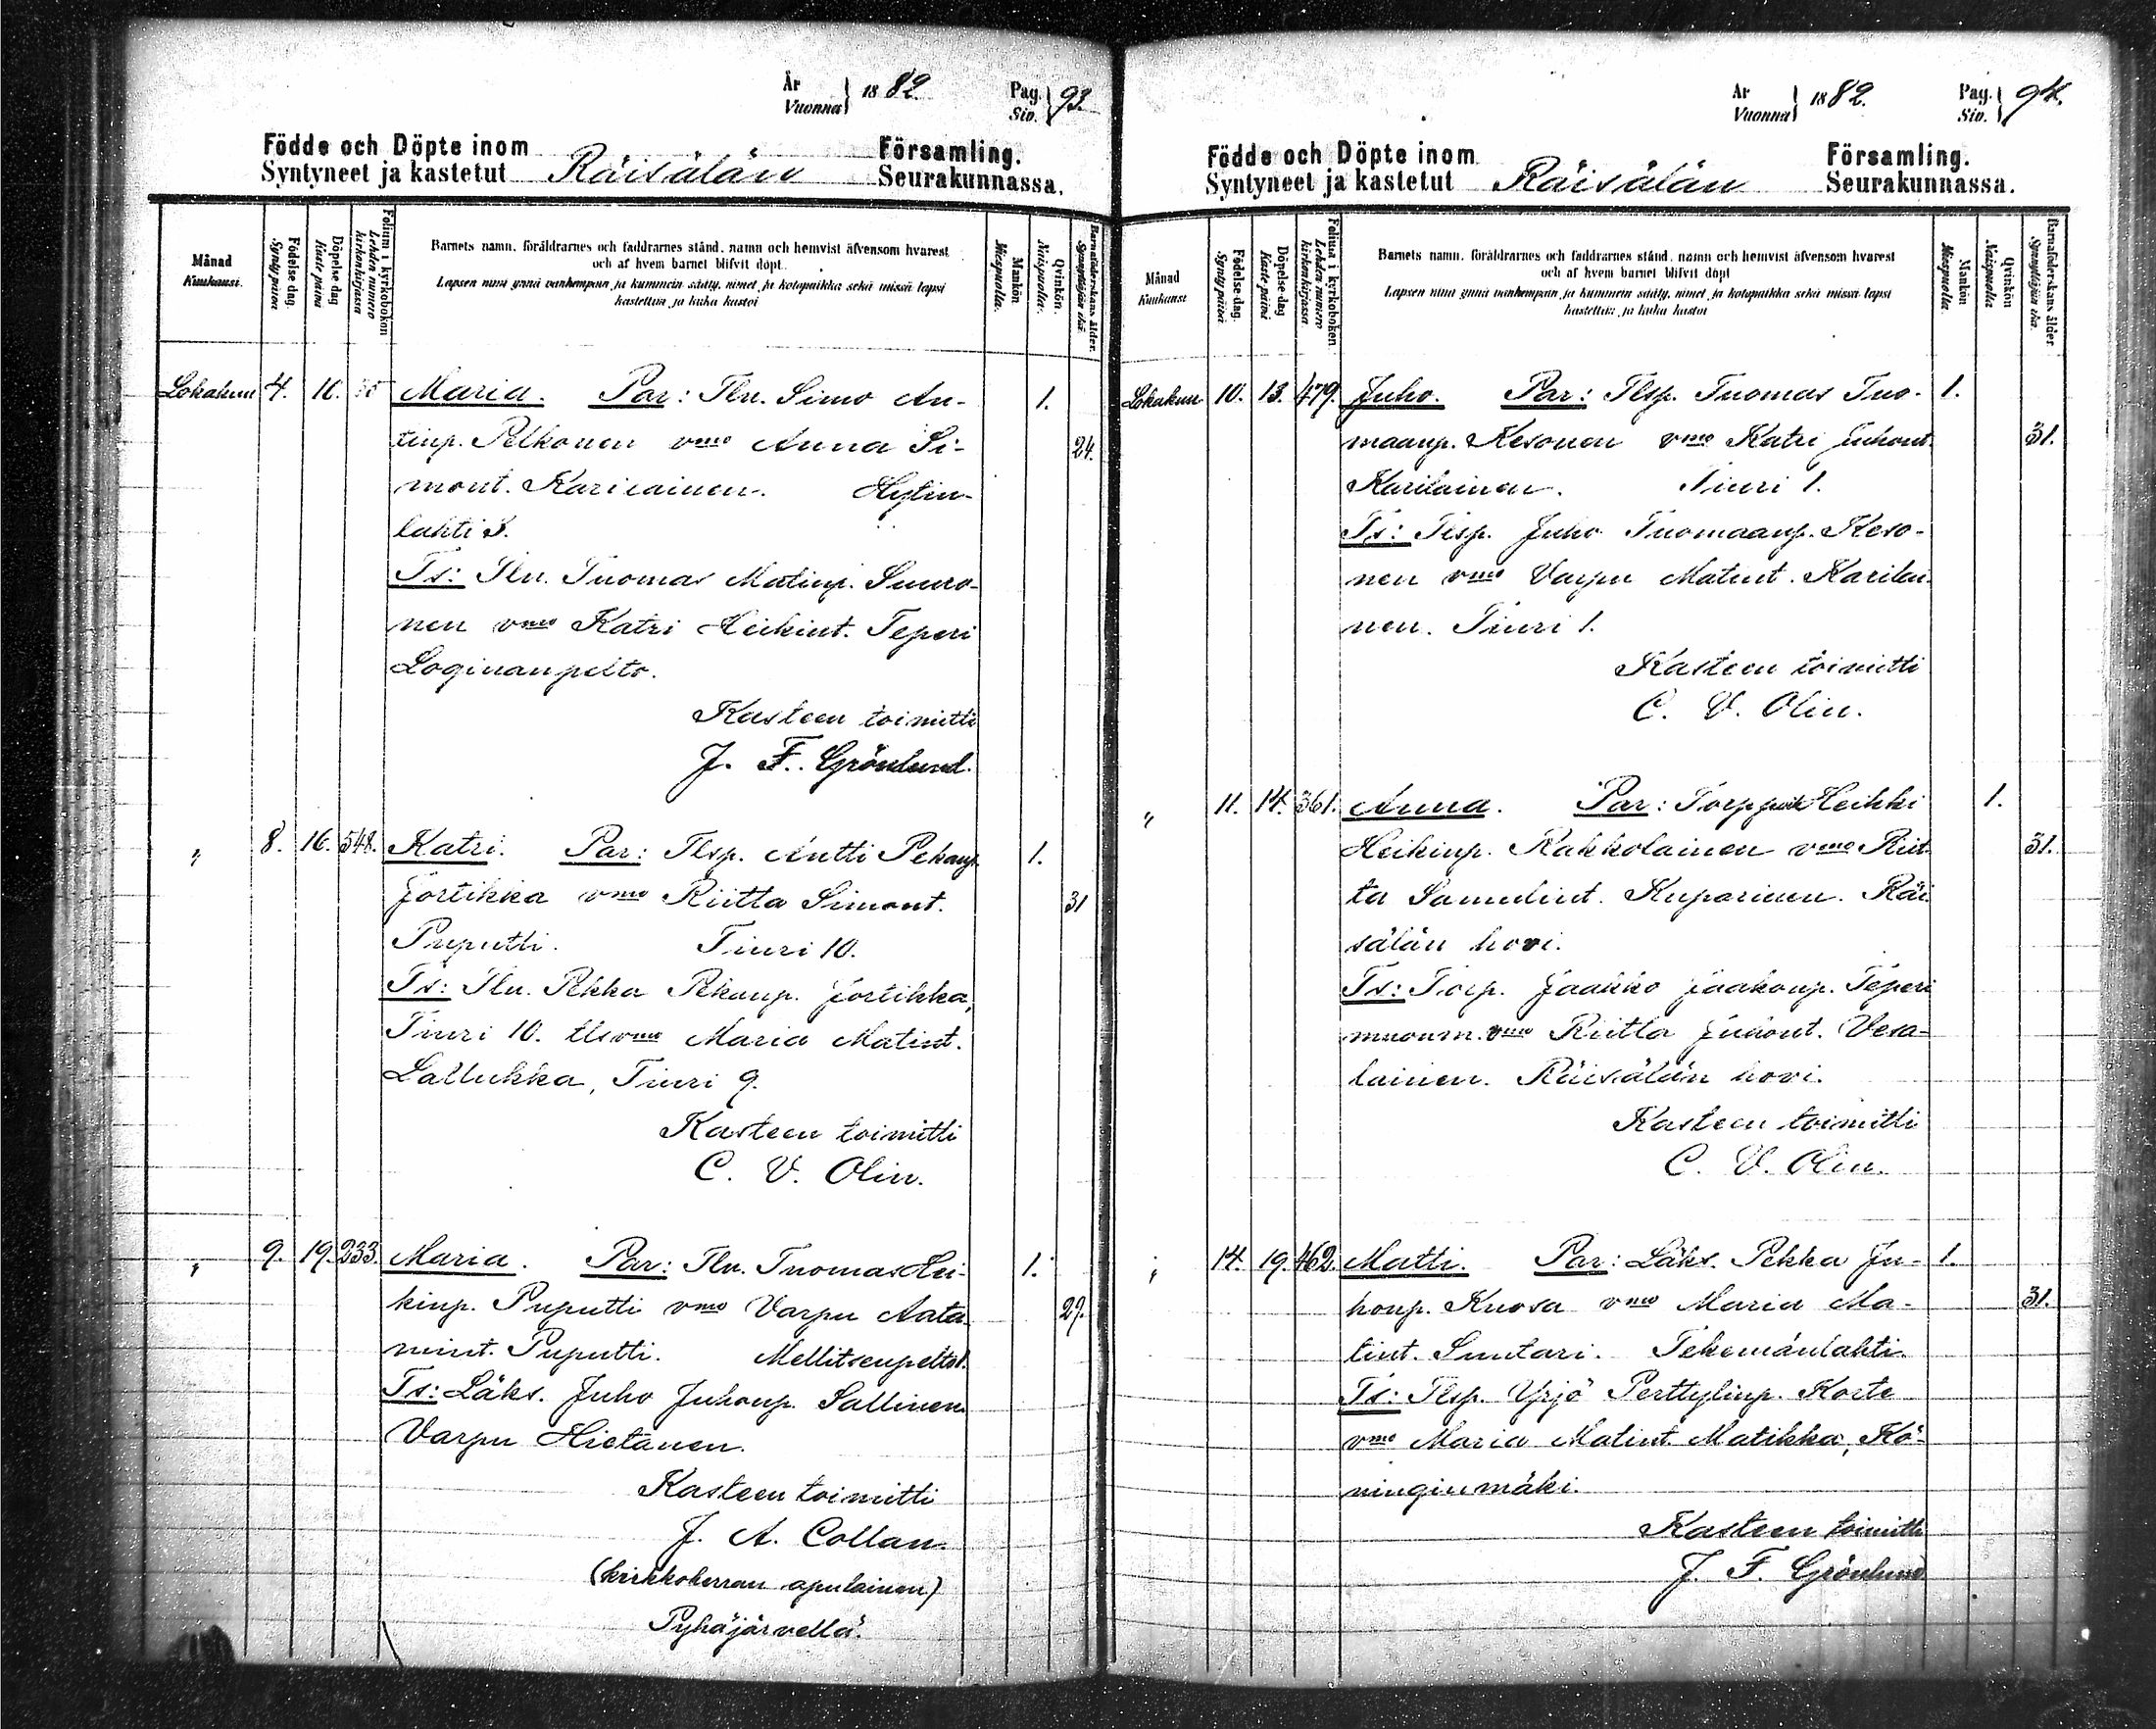 År
Vuonna } 1882. Pag.
Siv. } 93.
Födde och Döpte inom Församling.
Syntyneet ja kastetut Räisälän Seurakunnassa.
Månad
Kuukausi.
Födelse-dag.
Synty päivä
Döpelse dag
Kaste päivä
Folium i kyrkoboken
Lehden numero
kirkonkirjassa
Barnets namn, föräldrarnes och faddrarnes stånd, namn och hemvist äfvensom hvarest
och af hvem barnet blifvit döpt.
Lapsen nimi ynnä vanhempain ja kummein sääty, nimet ja kotopaikka sekä missä lapsi
kastettiin ja kuka kastoi
Mankön
Miespuolia.
Qvinkön.
Naispuolia.
Barnaföderskans ålder.
Synnyttäjän ikä.
Lokakuu 4. 16. Maria. Par: Tln. Simo An- 1.
tinp. Pelkonen vmo Anna Si- 24.
mont. Karilainen. Hytin-
lahti 3.
Ts: Tln. Tuomas Matinp. Suuro-
nen vmo Katri Heikint. Teperi
Loginanpelto.
Kasteen toimitti
J. F. Grönlund.
" 8. 16. 548. Katri. Par: Tlsp. Antti Pekanp. 1.
Jortikka vmo Riitta Simont. 31
Puputti. Tiuri 10.
Ts: Tln. Pekka Pekanp. Jortikka,
Tiuri 10. tlsvmo Maria Matint.
Lallukka, Tiuri 9.
Kasteen toimitti
C. V. Olin.
" 9. 19. 233. Maria. Par: Tln. Tuomas Hei- 1.
kinp. Puputti vmo Varpu Aata- 29.
mint. Puputti. Mellitsenpelto 1.
Ts: Läks. Juho Juhonp. Sallinen
Varpu Hietanen.
Kasteen toimitti
J. A. Collan.
(kirkkoherran apulainen)
Pyhäjärvellä.
År
Vuonna } 1882. Pag.
Siv. } 94.
Födde och Döpte inom Församling.
Syntyneet ja kastetut Räisälän Seurakunnassa.
Månad
Kuukausi
Födelse-dag.
Synty päivä
Döpelse dag
Kaste päivä
Folium i kyrkoboken
Lehden numero
kirkonkirjassa
Barnets namn, föräldrarnes och faddrarnes stånd, namn och hemvist äfvensom hvarest
och af hvem barnet blifvit döpt
Lapsen nimi ynnä vanhempain ja kummein sääty, nimet ja kotopaikka sekä missä lapsi
kastettiin ja kuka kastoi
Mankön
Miespuolia.
Qvinkön
Naispuolia
Barnaföderskans ålder.
Synnyttäjän ikä.
Lokakuu 10. 13. 479. Juho. Par: Tlsp. Tuomas Tuo- 1.
maanp. Kesonen vmo Katri Juhont. 31.
Karilainen. Tiuri 1.
Ts: Tlsp. Juho Tuomaanp. Keso-
nen vmo Varpu Matint. Karilai-
nen. Tiuri 1.
Kasteen toimitti
C. V. Olin.
" 11. 14. 361. Anna. Par: Heikki 1.
Heikinp. Kakkolainen vmo Riit- 31.
ta Samulint. Kuparinen. Räi-
sälän hovi.
Ts: Torp. Jaakko Jaakonp. Teperi
vmo Riitta Juhont. Vesa-
lainen. Räisälän hovi.
Kasteen toimitti
C. V. Olin.
" 14. 19. 462. Matti. Par: Läks. Pekka Ju- 1.
honp. Kuosa vmo Maria Ma- 31.
tint. Suutari. Tekemänlahti.
Ts: Tlsp. Yrjö Perttylinp. Korte
vmo Maria Matint. Matikka, Kö-
ninginmäki.
Kasteen toimitti
J. F. Grönlund